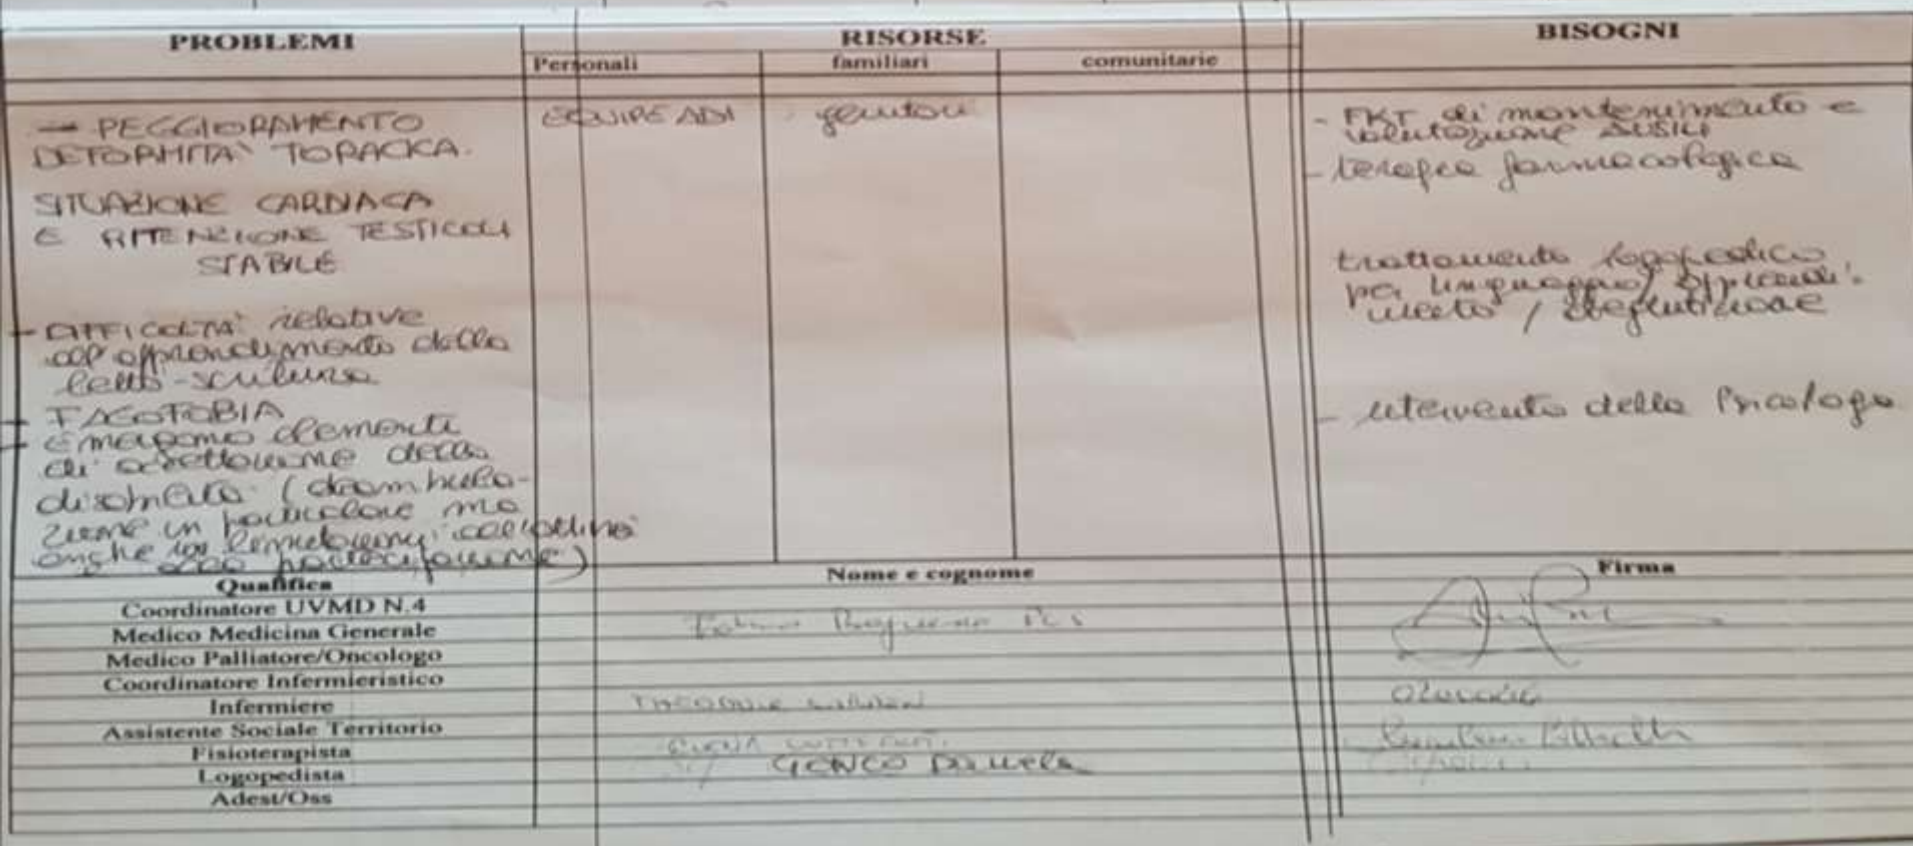 PROBLEMI RISORSE BISOGNI
Personali familiari comunitarie
- PEGGIORAMENTO
DEFORMITA' TORACICA.
SITUAZIONE CARDIACA
E RITENZIONE TESTICOLI
STABILE
- DIFFICOLTA' relative
all'apprendimento della
letto-scrittura
- FAGOFOBIA
- Emergono elementi
di accettazione della
disabilità (deambula-
zione in particolare ma
anche
EQUIPE ADI
genitori
- FKT di mantenimento e
valutazione AUSILI
- terapia farmacologica
trattamento logopedico
per linguaggio / apprendi-
mento / deglutizione
- intervento dello Psicologo
Qualifica Nome e cognome Firma
Coordinatore UVMD N.4
Medico Medicina Generale
Medico Palliatore/Oncologo
Coordinatore Infermieristico
Infermiere
Assistente Sociale Territorio
Fisioterapista
Logopedista GENCO Daniela
Adest/Oss